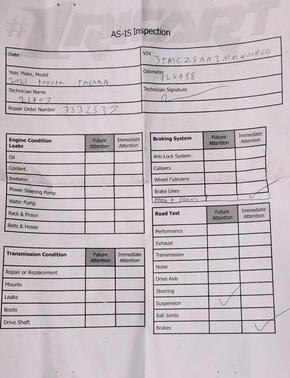 AS-IS Inspection
Date
VIN
Year, Make, Model
2021 Toyota TACOMA
Odometer
125988
Technician Name
Technician Signature
Repair Order Number 7532537
Engine Condition
Leaks
Future Attention
Immediate Attention
Oil
Coolant
Radiator
Power Steering Pump
Water Pump
Rack & Pinion
Belts & Hoses
Transmission Condition
Future Attention
Immediate Attention
Repair or Replacement
Mounts
Leaks
Boots
Drive Shaft
Braking System
Future Attention
Immediate Attention
Anti-Lock System
Calipers
Wheel Cylinders
Brake Lines
Road Test
Future Attention
Immediate Attention
Performance
Exhaust
Transmission
Noise
Drive Axle
Steering
Suspension
Ball Joints
Brakes